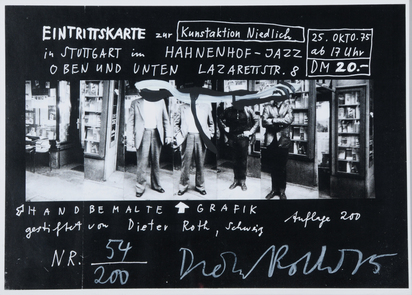 EINTRITTSKARTE zur Kunstaktion Niedlich
in STUTTGART im HAHNENHOF-JAZZ
OBEN UND UNTEN LAZARETTSTR. 8
25. OKTO. 75
ab 17 Uhr
DM 20.-
HANDBEMALTE GRAFIK
gestiftet von Dieter Roth, Schweiz
Auflage 200
NR: 54
200
Dieter Roth 75